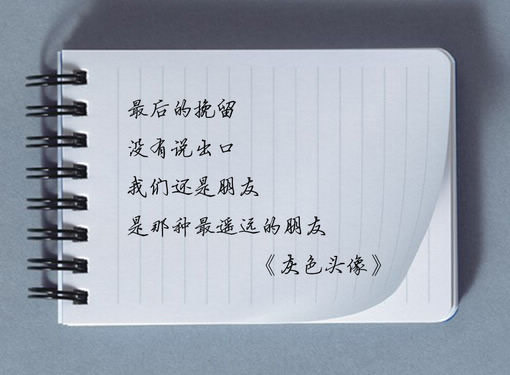 最后的挽留
没有说出口
我们还是朋友
是那种最遥远的朋友
《灰色头像》